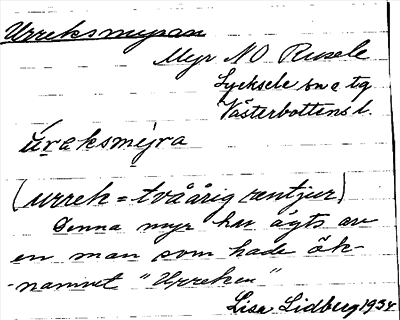 Urreksmyran
Myr NO Rusele
Lycksele sn o tg
Västerbottens l.
úreksmýra
(urrek = tvåårig rentjur)
Denna myr har ägts av
en man som hade ök-
-namnet "Urreken"
Lisa Lidberg 1934